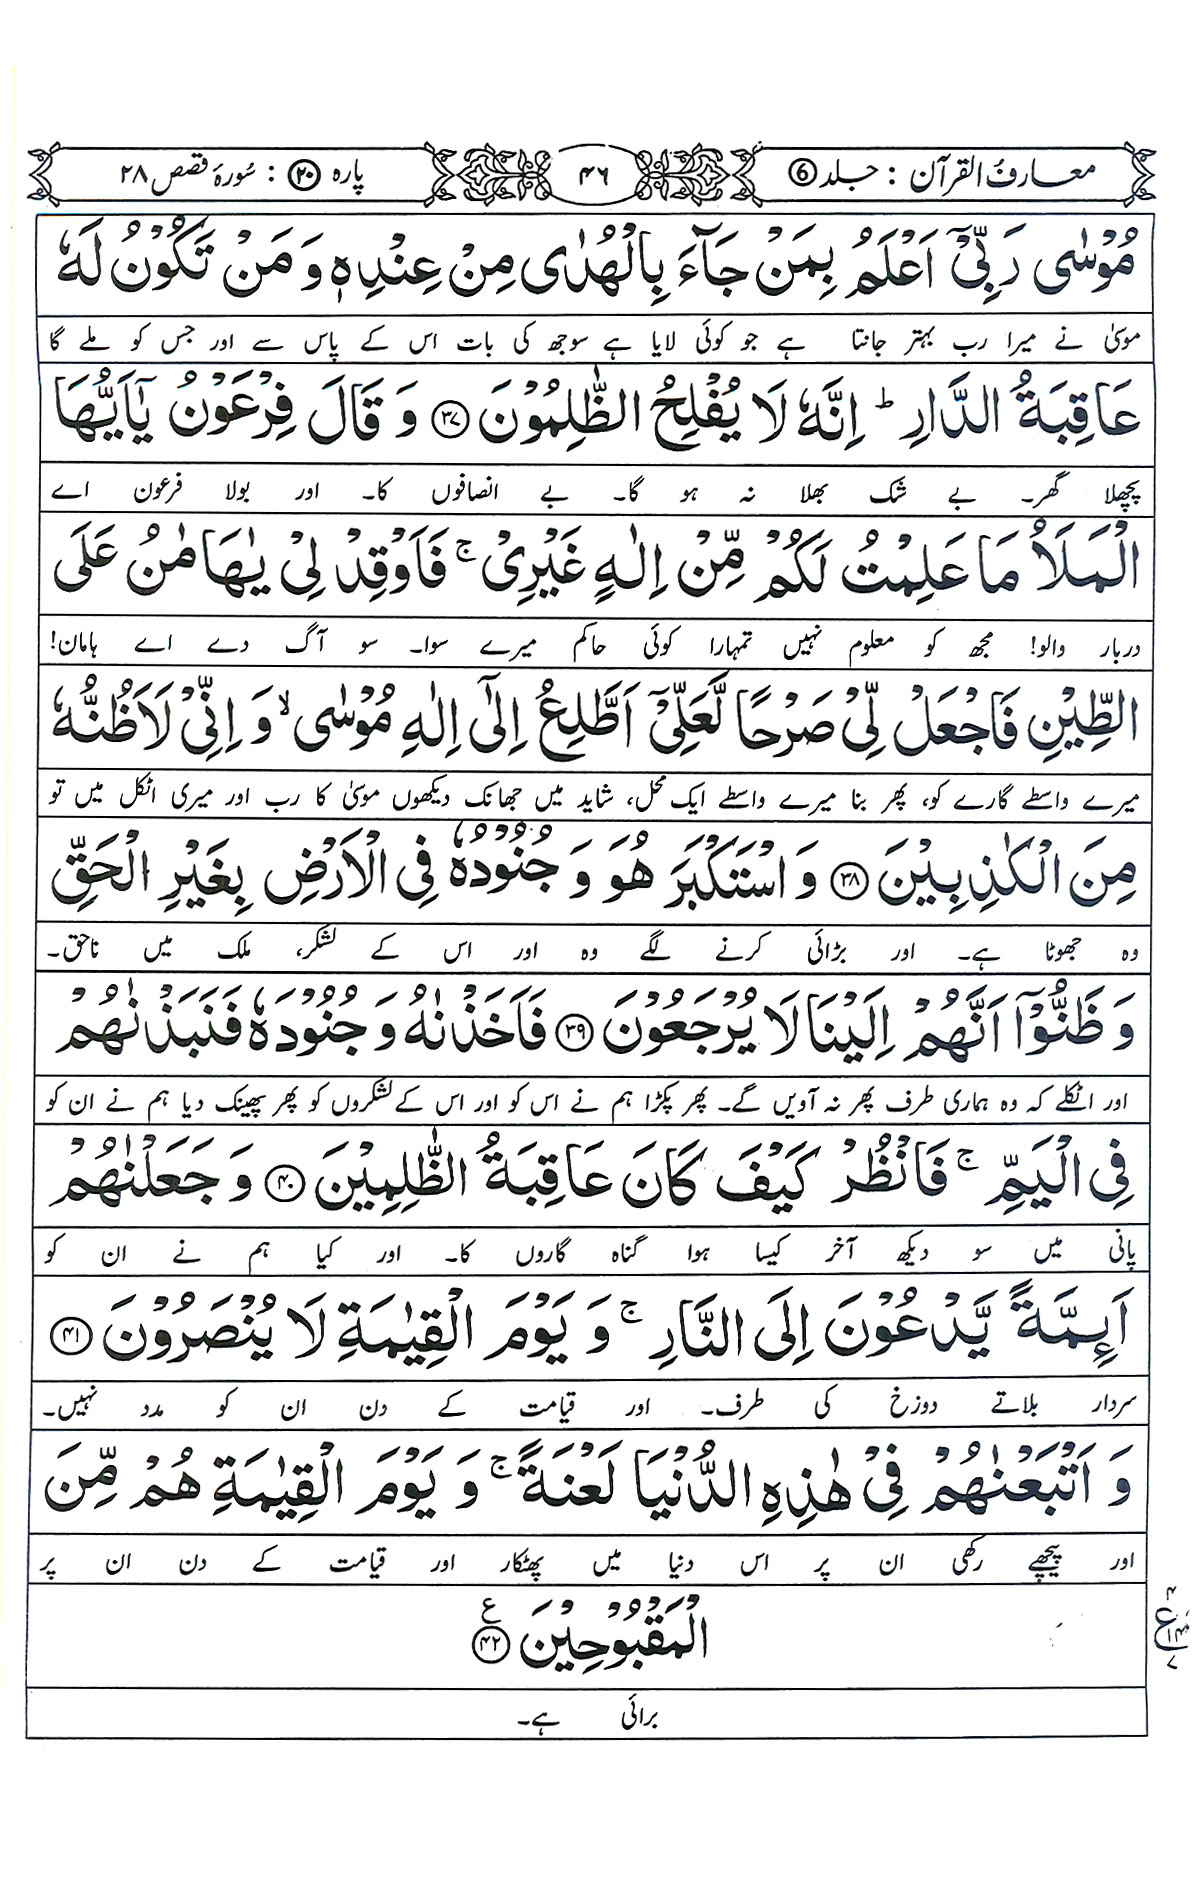 معارفُ القرآن : جلد ⑥
۴۶
پارہ ⑳ : سُورۂ قصص ۲۸
مُوْسٰى رَبِّیْۤ اَعْلَمُ بِمَنْ جَآءَ بِالْهُدٰى مِنْ عِنْدِهٖ وَ مَنْ تَكُوْنُ لَهٗ
موسیٰ نے میرا رب بہتر جانتا ہے جو کوئی لایا ہے سوجھ کی بات اس کے پاس سے اور جس کو ملے گا
عَاقِبَةُ الدَّارِ ؕ اِنَّهٗ لَا یُفْلِحُ الظّٰلِمُوْنَ ۝۳۷ وَ قَالَ فِرْعَوْنُ یٰۤاَیُّهَا
پچھلا گھر۔ بے شک بھلا نہ ہو گا۔ بے انصافوں کا۔ اور بولا فرعون اے
الْمَلَاُ مَا عَلِمْتُ لَكُمْ مِّنْ اِلٰهٍ غَیْرِیْ ۚ فَاَوْقِدْ لِیْ یٰهَامٰنُ عَلَى
دربار والو! مجھ کو معلوم نہیں تمہارا کوئی حاکم میرے سوا۔ سو آگ دے اے ہامان!
الطِّیْنِ فَاجْعَلْ لِّیْ صَرْحًا لَّعَلِّیْۤ اَطَّلِعُ اِلٰۤى اِلٰهِ مُوْسٰى ۙ وَ اِنِّیْ لَاَظُنُّهٗ
میرے واسطے گارے کو، پھر بنا میرے واسطے ایک محل، شاید میں جھانک دیکھوں موسیٰ کا رب اور میری اٹکل میں تو
مِنَ الْكٰذِبِیْنَ ۝۳۸ وَ اسْتَكْبَرَ هُوَ وَ جُنُوْدُهٗ فِی الْاَرْضِ بِغَیْرِ الْحَقِّ
وہ جھوٹا ہے۔ اور بڑائی کرنے لگے وہ اور اس کے لشکر، ملک میں ناحق۔
وَ ظَنُّوْۤا اَنَّهُمْ اِلَیْنَا لَا یُرْجَعُوْنَ ۝۳۹ فَاَخَذْنٰهُ وَ جُنُوْدَهٗ فَنَبَذْنٰهُمْ
اور اٹکلے کہ وہ ہماری طرف پھر نہ آویں گے۔ پھر پکڑا ہم نے اس کو اور اس کے لشکروں کو پھر پھینک دیا ہم نے ان کو
فِی الْیَمِّ ۚ فَانْظُرْ كَیْفَ كَانَ عَاقِبَةُ الظّٰلِمِیْنَ ۝۴۰ وَ جَعَلْنٰهُمْ
پانی میں سو دیکھ آخر کیسا ہوا گناہ گاروں کا۔ اور کیا ہم نے ان کو
اَىِٕمَّةً یَّدْعُوْنَ اِلَى النَّارِ ۚ وَ یَوْمَ الْقِیٰمَةِ لَا یُنْصَرُوْنَ ۝۴۱
سردار بلاتے دوزخ کی طرف۔ اور قیامت کے دن ان کو مدد نہیں۔
وَ اَتْبَعْنٰهُمْ فِیْ هٰذِهِ الدُّنْیَا لَعْنَةً ۚ وَ یَوْمَ الْقِیٰمَةِ هُمْ مِّنَ
اور پیچھے رکھی ان پر اس دنیا میں پھٹکار اور قیامت کے دن ان پر
الْمَقْبُوْحِیْنَ ۝۴۲ ع
۴
ع ۱۴
۷
برائی ہے۔